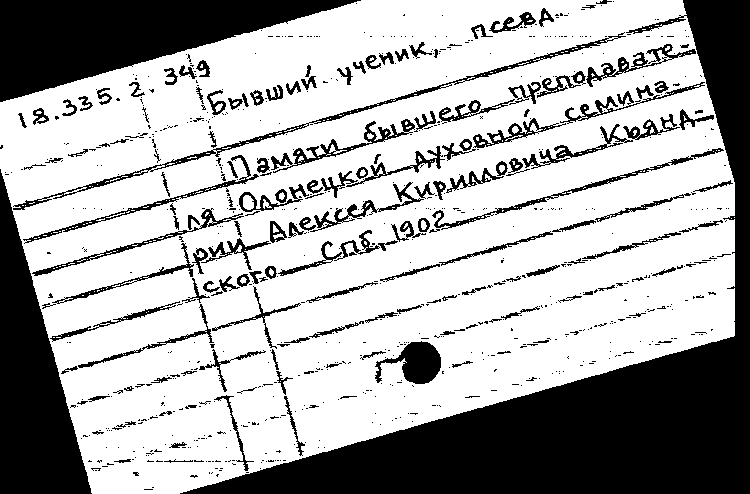 18.335.2.349
Бывший ученик, псевд.
Памяти бывшего преподавате-
ля Олонецкой духовной семина-
рии Алексея Кирилловича Кьянд-
ского. Спб, 1902